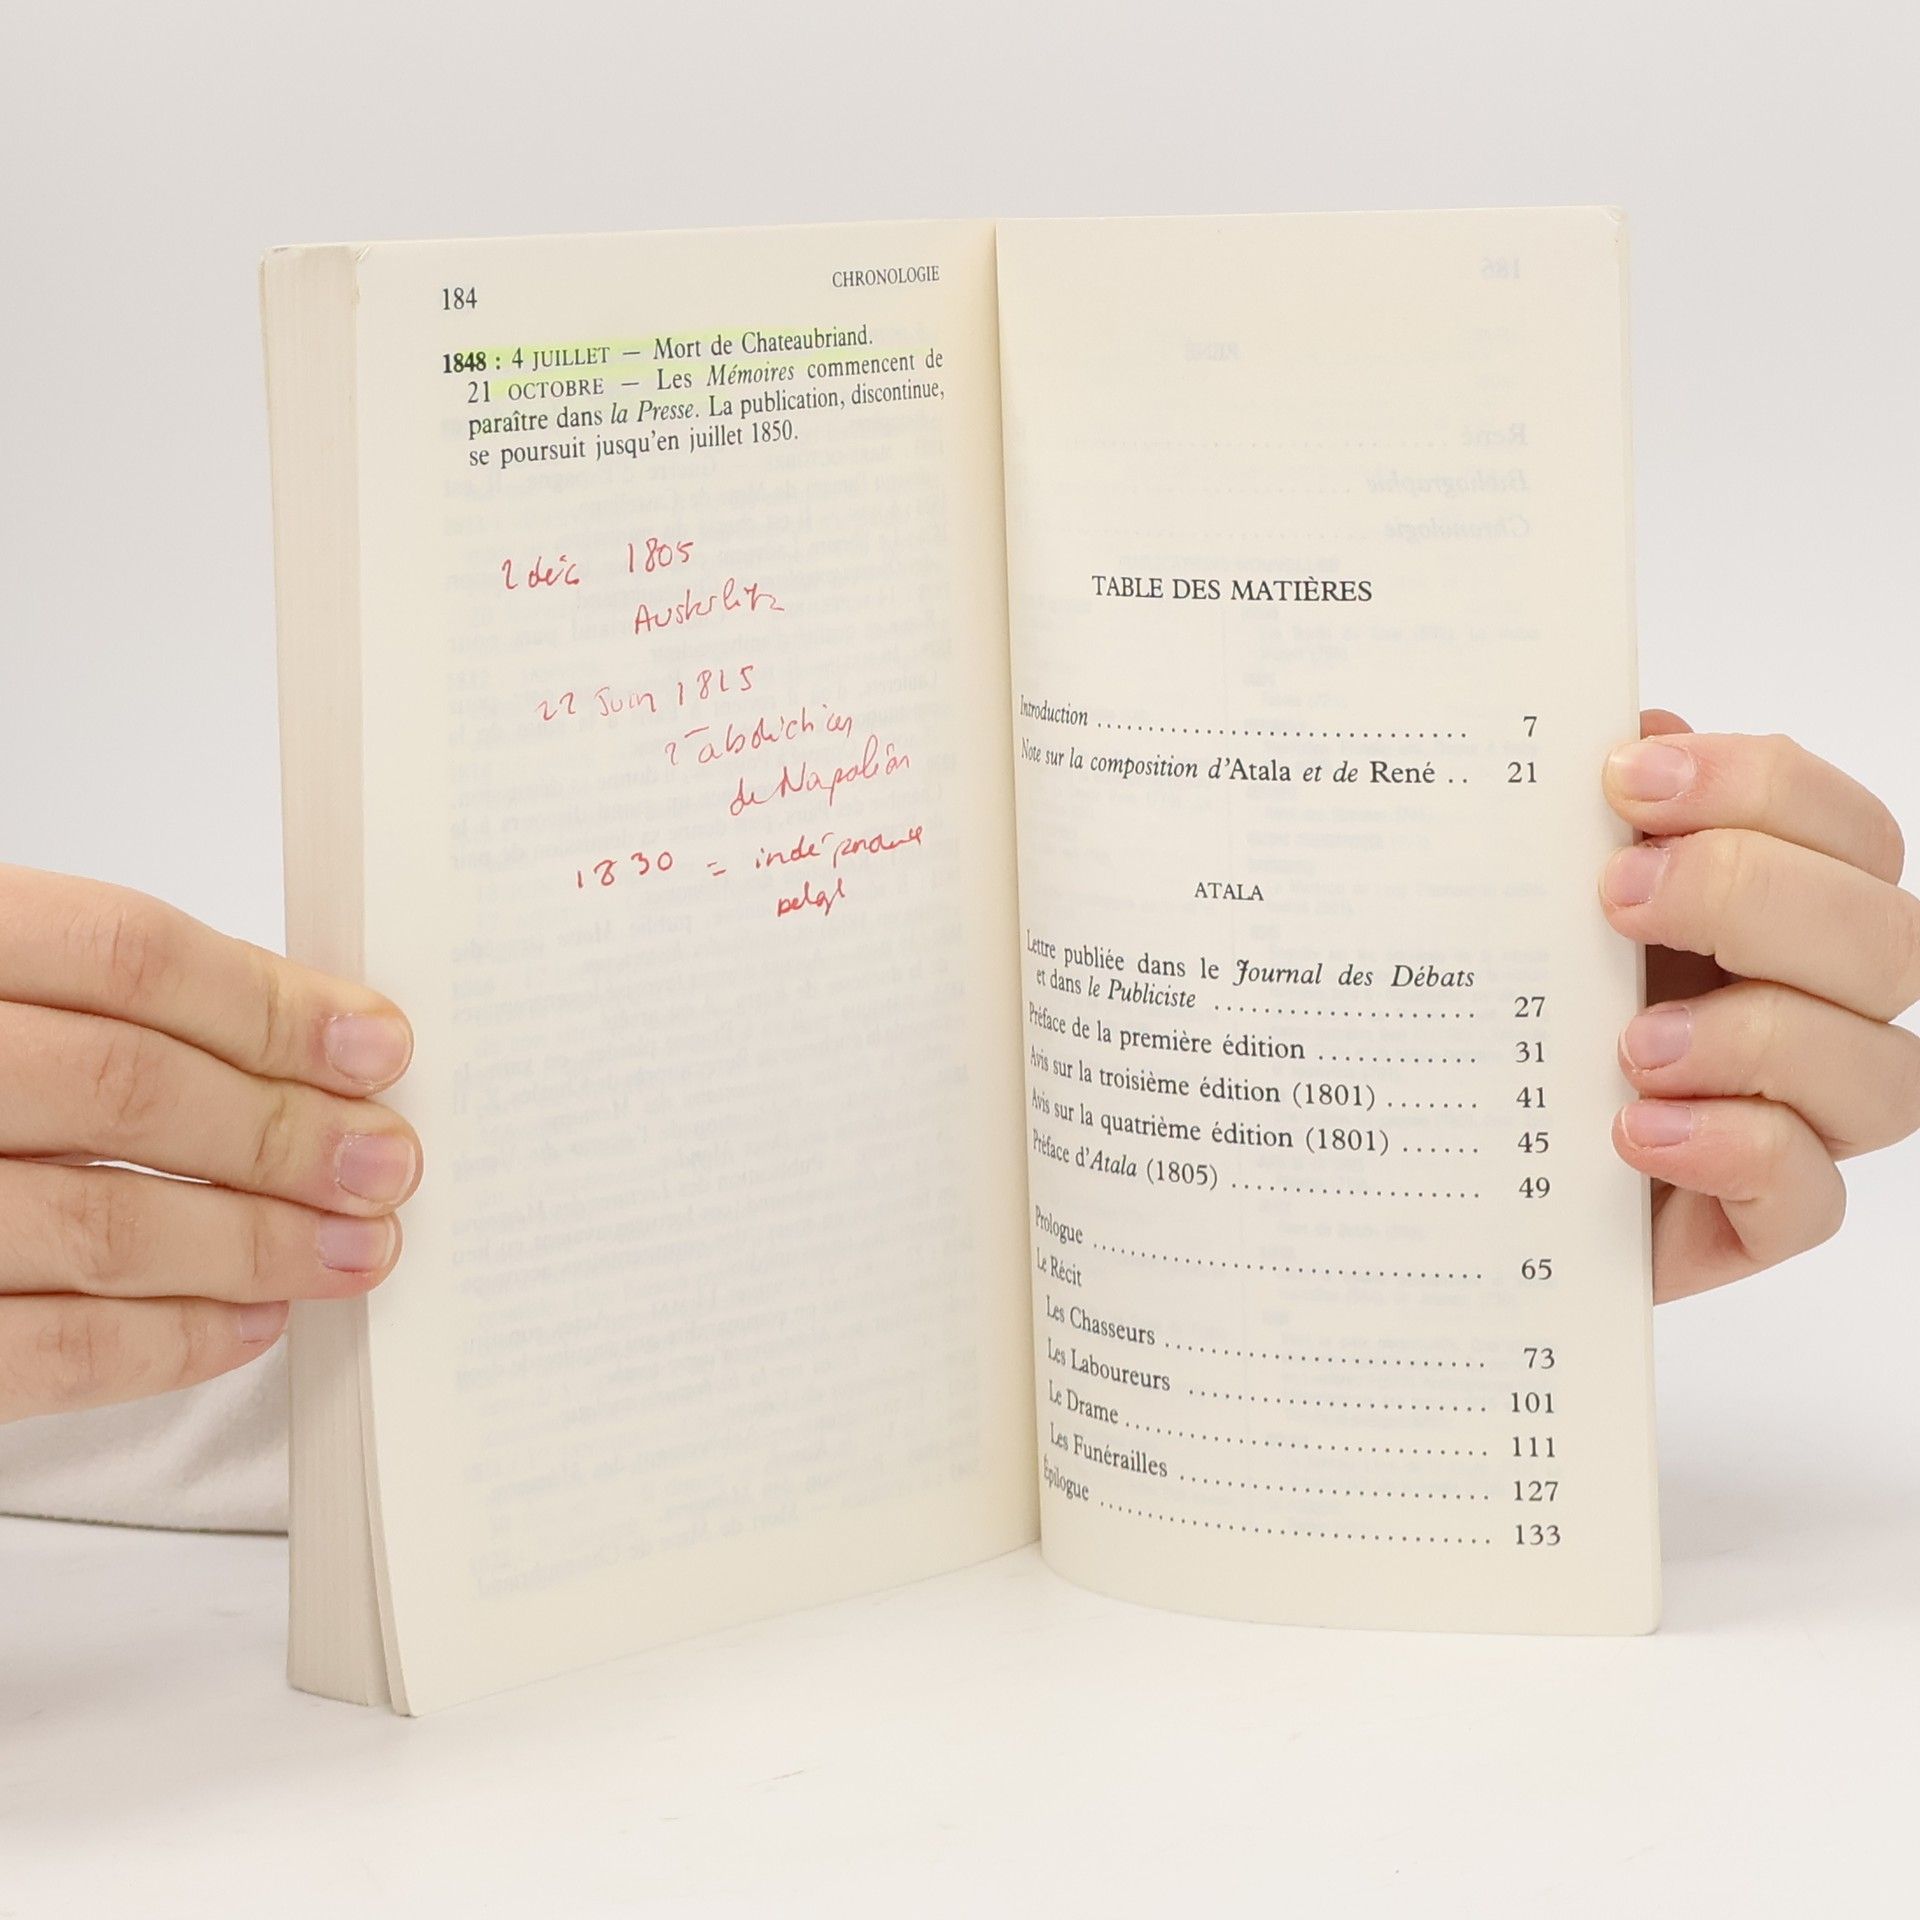 184
CHRONOLOGIE
1848 : 4 JUILLET — Mort de Chateaubriand.
21 OCTOBRE — Les Mémoires commencent de
paraître dans la Presse. La publication, discontinue,
se poursuit jusqu'en juillet 1850.
2 déc 1805
Austerlitz
22 Juin 1815
2e abdication
de Napoléon
1830 = indépendance
belge
TABLE DES MATIÈRES
Introduction .............................. 7
Note sur la composition d'Atala et de René .. 21
ATALA
Lettre publiée dans le Journal des Débats
et dans le Publiciste ..................... 27
Préface de la première édition ............ 31
Avis sur la troisième édition (1801) ....... 41
Avis sur la quatrième édition (1801) ...... 45
Préface d'Atala (1805) .................... 49
Prologue .............................. 65
Le Récit
Les Chasseurs .......................... 73
Les Laboureurs ........................ 101
Le Drame ............................. 111
Les Funérailles ........................ 127
Épilogue .............................. 133